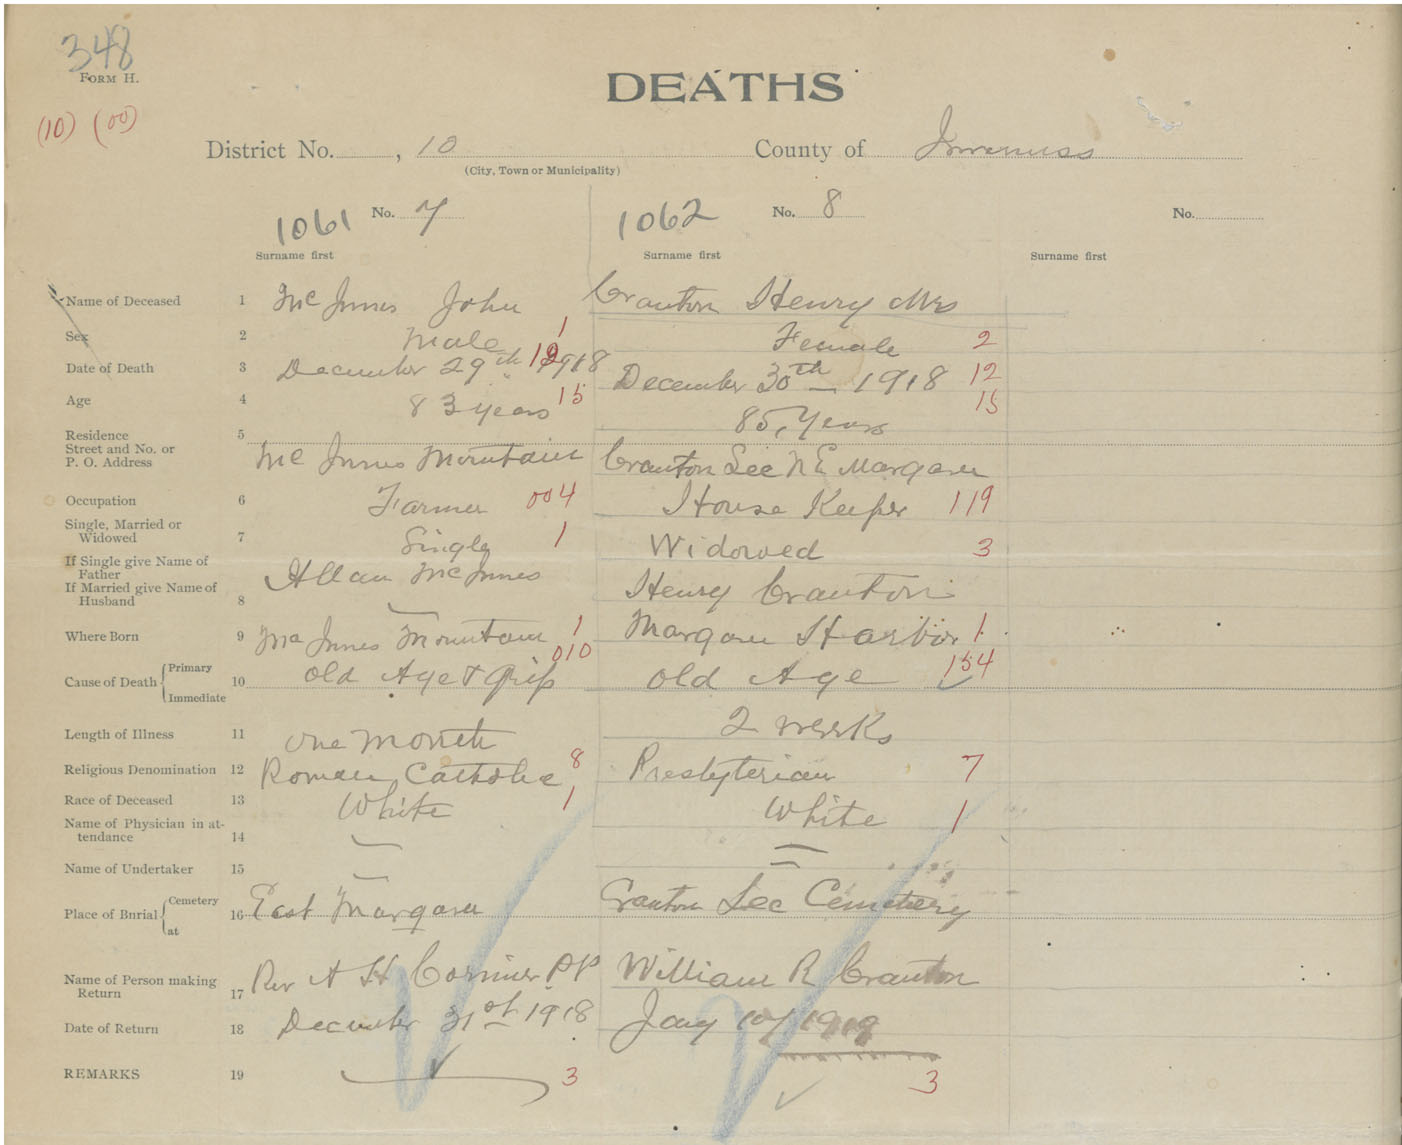 348
FORM H.
DEATHS
(10) (00)
District No. , 10 County of Inverness
(City, Town or Municipality)
1061 No. 7 1062 No. 8 No.
Surname first Surname first Surname first
Name of Deceased 1 McInnes John Cranton Henry Mrs
Sex 2 Male 1 Female 2
Date of Death 3 December 29th 1918 12 December 30th 1918 12
Age 4 83 years 15 85, Years 15
Residence 5
Street and No. or
P. O. Address McInnes Mountain Cranton Sec N E Margaree
Occupation 6 Farmer 004 House Keeper 119
Single, Married or
Widowed 7 Single 1 Widowed 3
If Single give Name of
Father Allan McInnes
If Married give Name of
Husband 8 — Henry Cranton
Where Born 9 McInnes Mountain 1 Margaree Harbor 1
Cause of Death { Primary Immediate 10 old Age & grip 010 old Age 154
Length of Illness 11 one month 2 weeks
Religious Denomination 12 Roman Catholic 8 Presbyterian 7
Race of Deceased 13 White 1 White 1
Name of Physician in at-
tendance 14 — —
Name of Undertaker 15 — —
Place of Burial { Cemetery at 16 East Margaree Cranton Sec Cemetery
Name of Person making
Return 17 Rev A H Cormier P P William R Cranton
Date of Return 18 December 31st 1918 Jany 10/ 1919
REMARKS 19 3 3